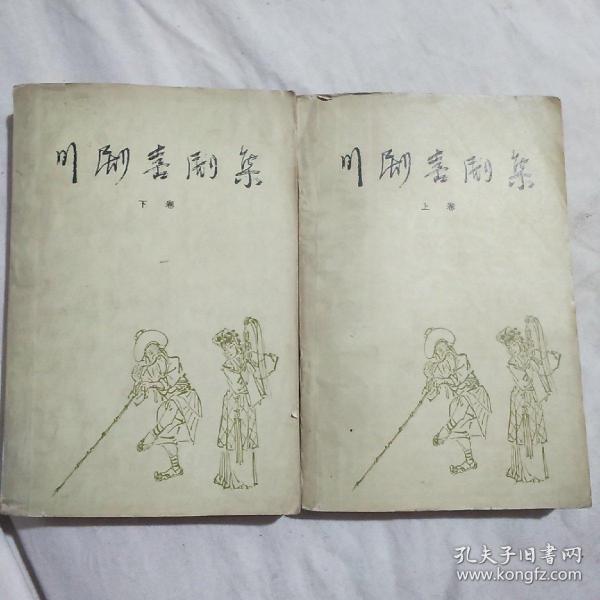 川剧喜剧集
下卷
川剧喜剧集
上卷
孔夫子旧书网
www.kongfz.com